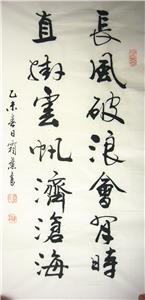 長風破浪會有時
直掛雲帆濟滄海
乙未春日霜葉書